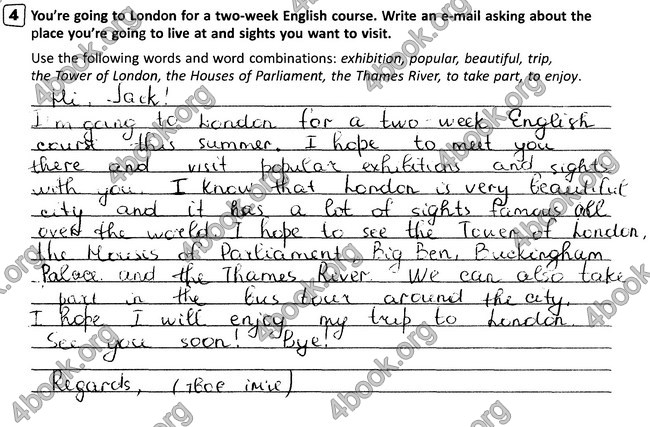 4 You're going to London for a two-week English course. Write an e-mail asking about the
place you're going to live at and sights you want to visit.
Use the following words and word combinations: exhibition, popular, beautiful, trip,
the Tower of London, the Houses of Parliament, the Thames River, to take part, to enjoy.
Hi, Jack!
I'm going to London for a two-week English
course this summer. I hope to meet you
there and visit popular exhibitions and sights
with you. I know that London is very beautiful
city and it has a lot of sights famous all
over the world. I hope to see the Tower of London,
the Houses of Parliament, Big Ben, Buckingham
Palace and the Thames River. We can also take
part in the bus tour around the city.
I hope I will enjoy my trip to London.
See you soon! Bye!
Regards, (твоє ім'я)
4book.org